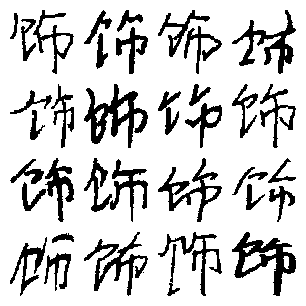 饰饰饰饰
饰饰饰饰
饰饰饰饰
饰饰饰饰